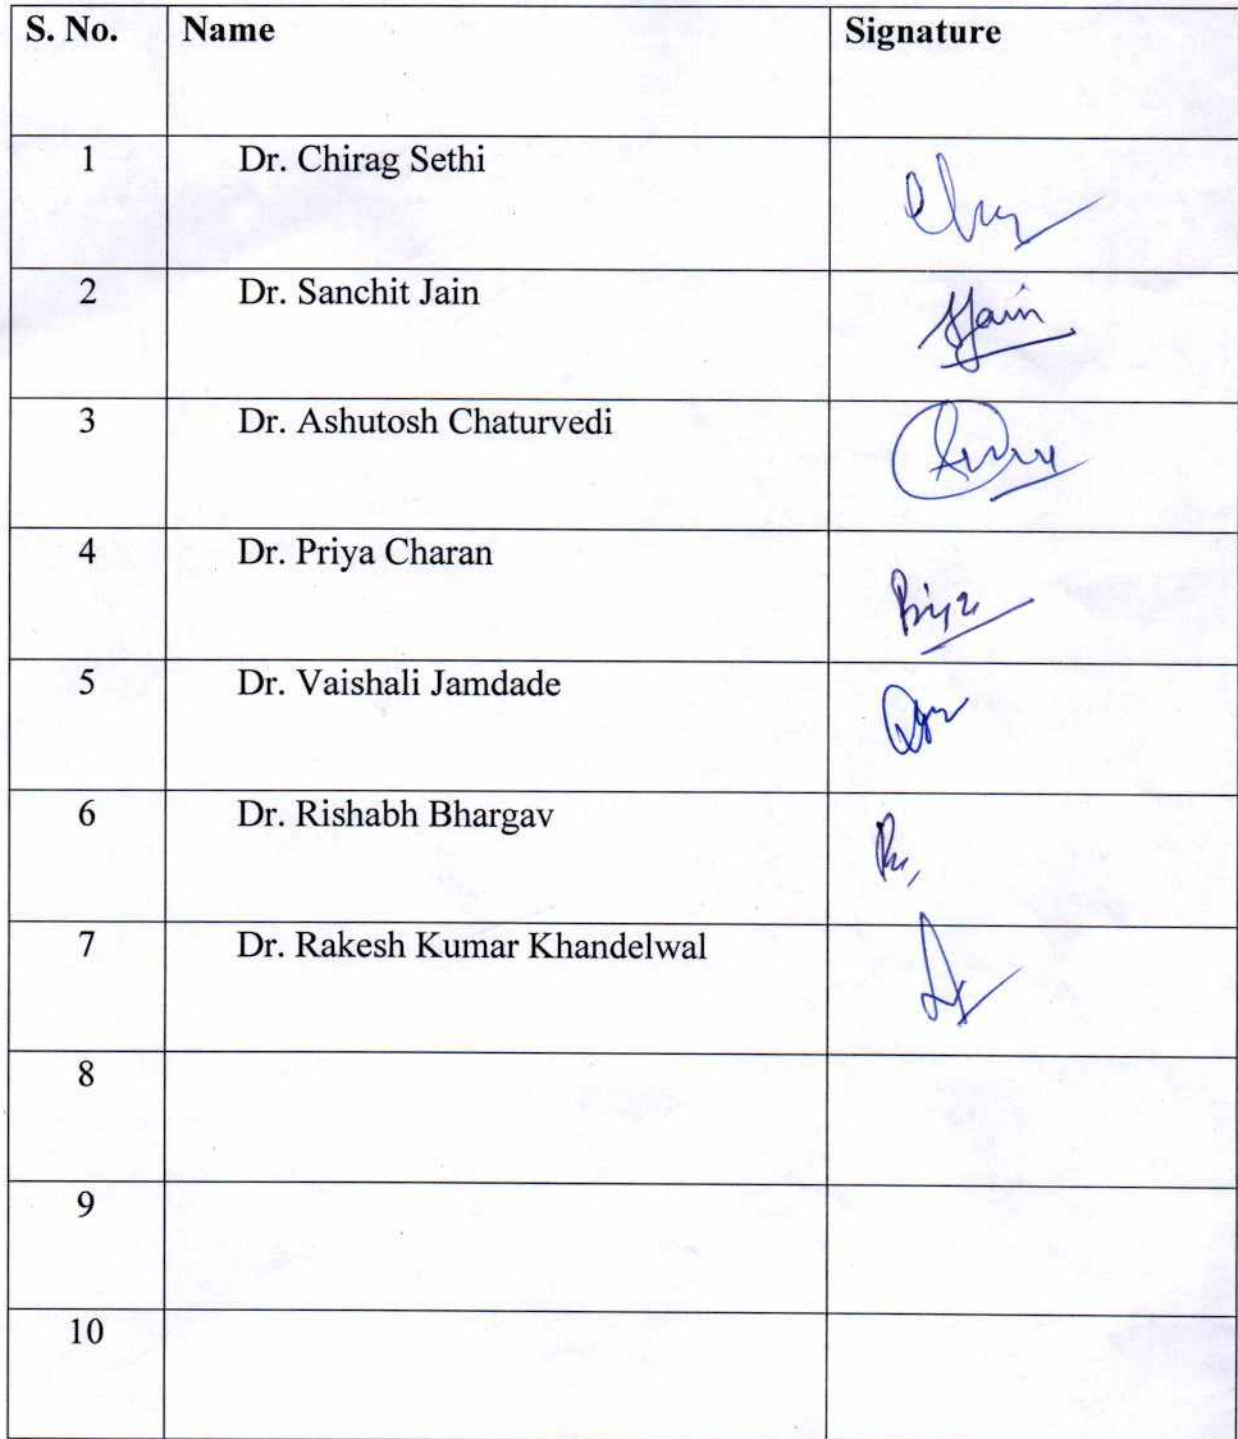 S. No. Name Signature
1 Dr. Chirag Sethi
2 Dr. Sanchit Jain Jain
3 Dr. Ashutosh Chaturvedi
4 Dr. Priya Charan Priya
5 Dr. Vaishali Jamdade
6 Dr. Rishabh Bhargav
7 Dr. Rakesh Kumar Khandelwal
8
9
10